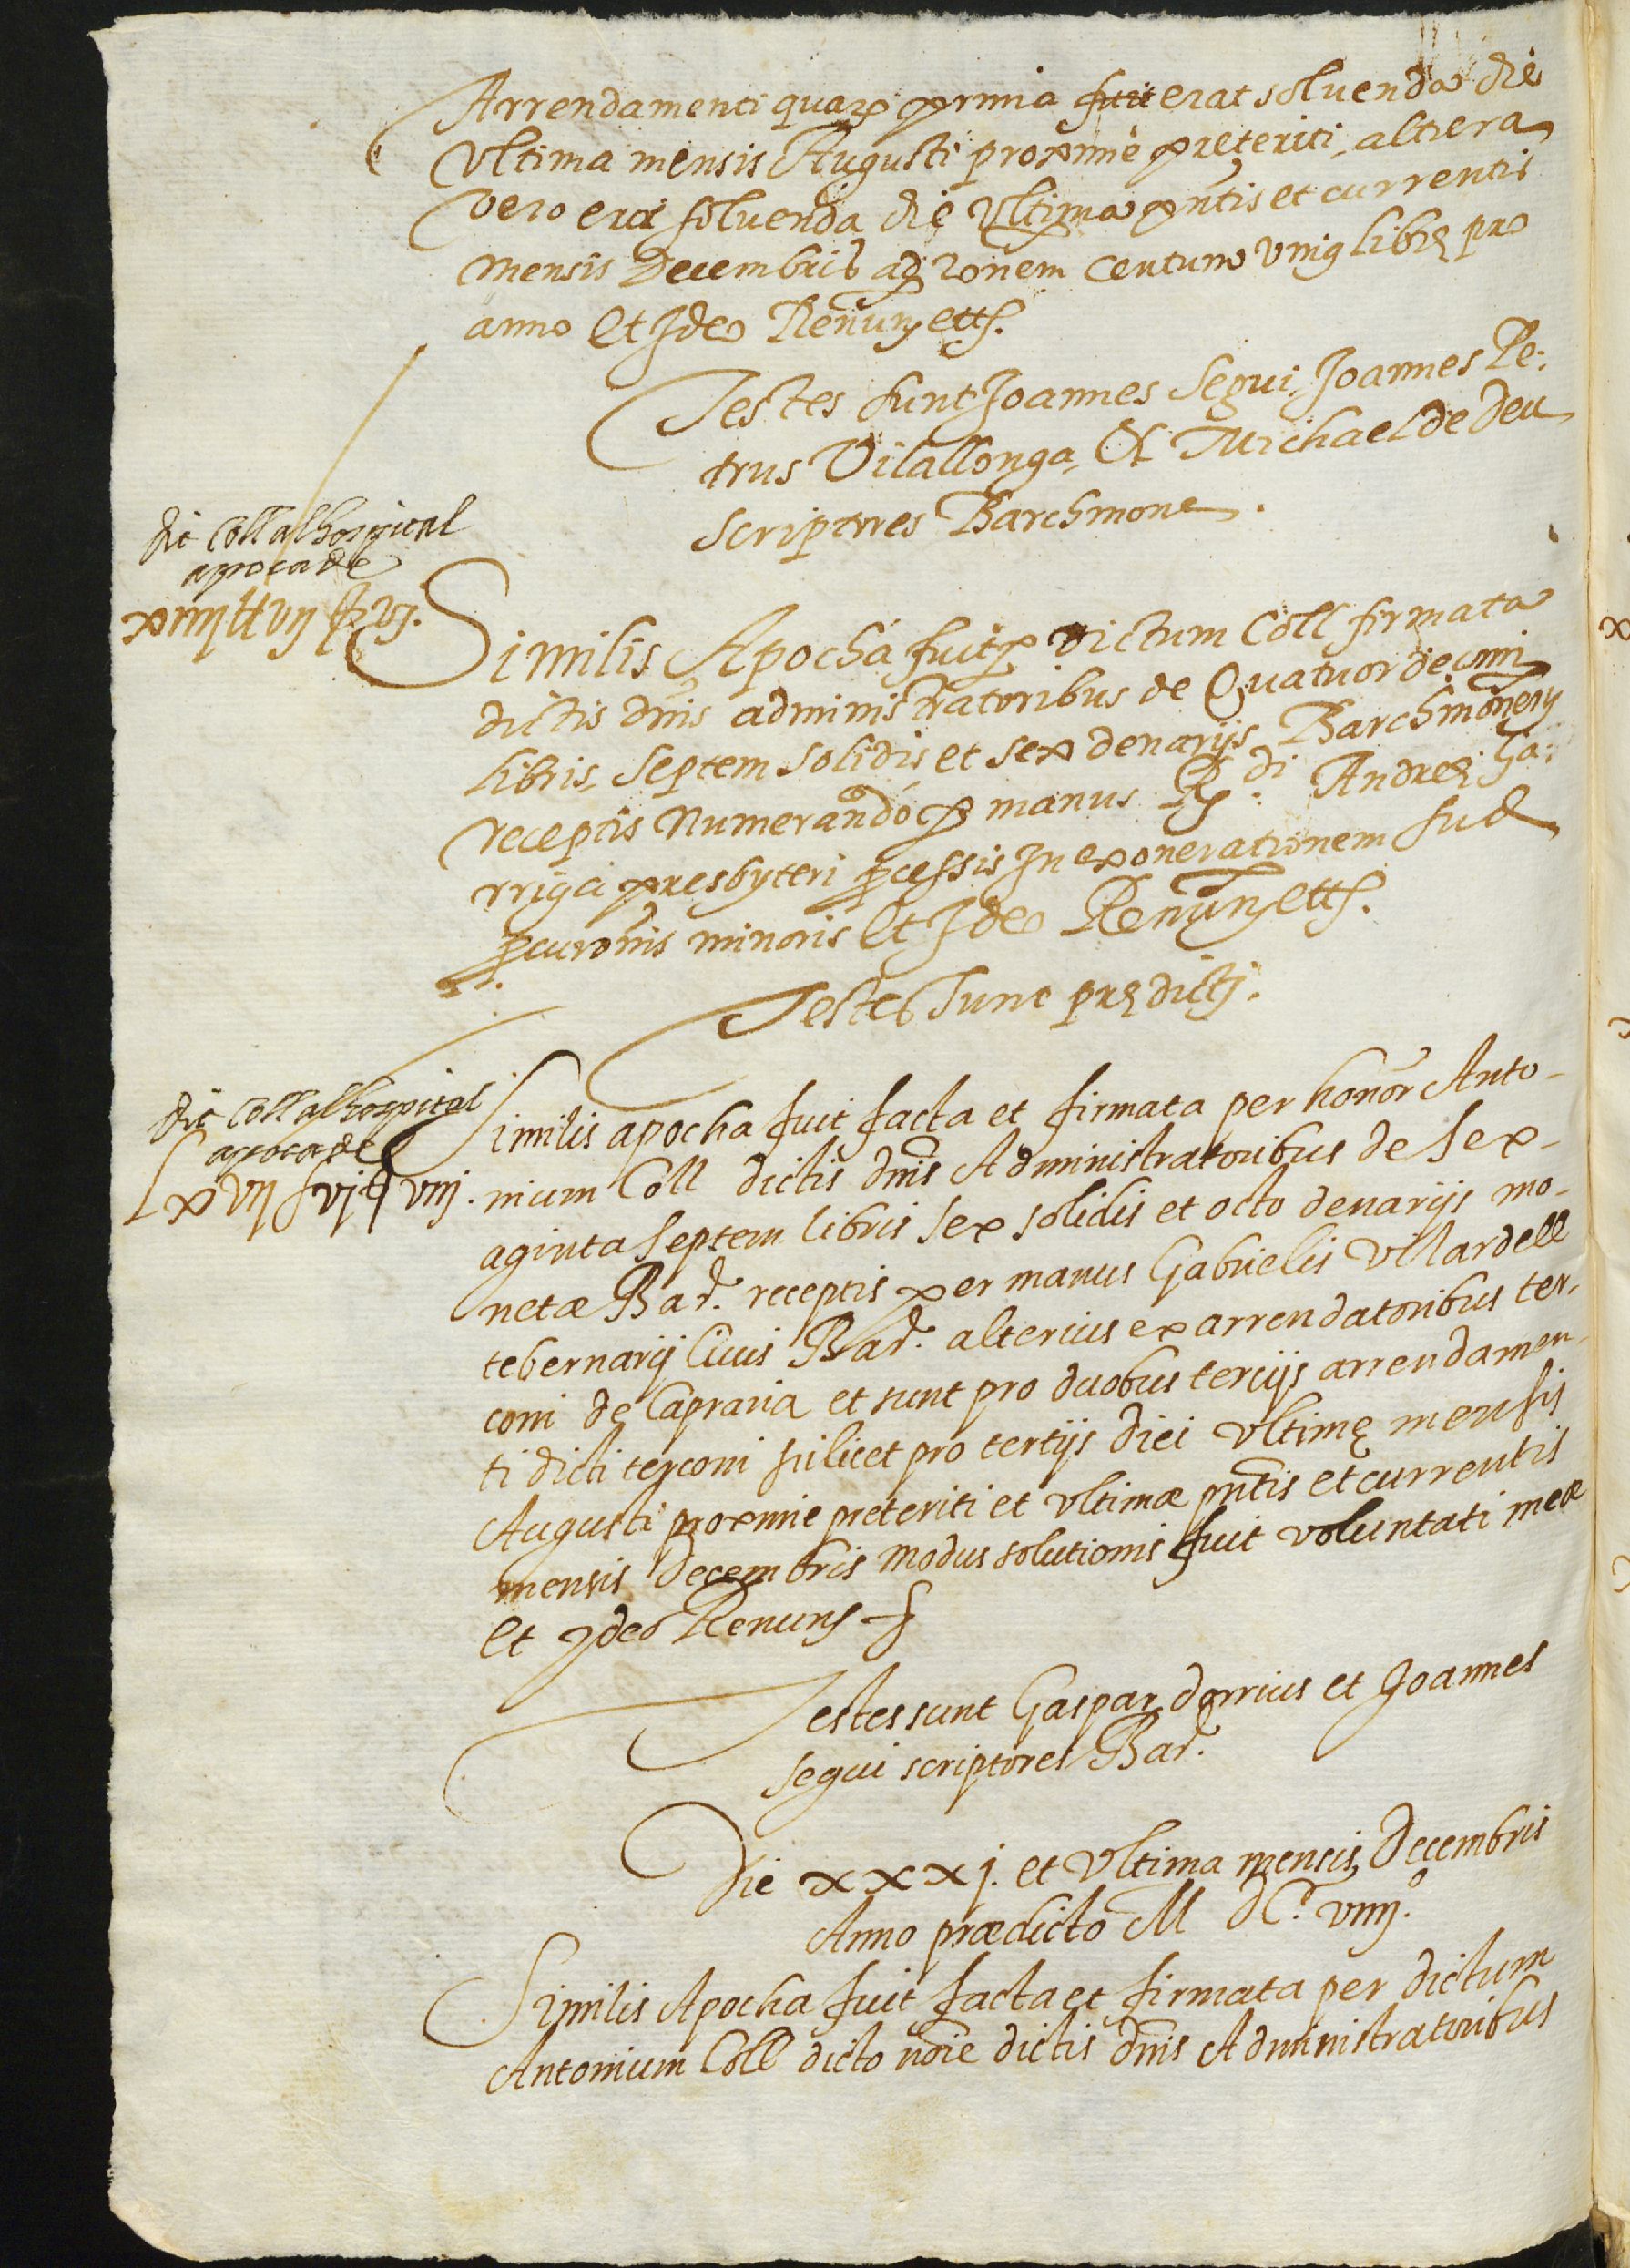 Arrendamenti quar prima fuit erat soluenda die
Vltima mensis Augusti proxime preteriti, altera
vero erat soluenda die Vltima pntis et currentis
mensis Decembris ad ronem centum vnius libre pro
anno Et Ideo Renun ettª.
Testes sunt Joannes Segui, Joannes Pe:
trus Vilallonga, Et Michael de Deu
scriptores Barchinone.
dit Coll al hospital
apoca de
xiiij ll vij ß vj.
Similis Apocha fuit per dictum Coll firmata
dictis dnis administratoribus de Quatuordecim
libris, septem solidis et sex denarijs Barchinonen
receptis numerando per manus Rdi. Andreę Ga:
rriga presbyteri processis In exonerationem suę
procuronis minoris Et Ideo Renun ettª.
Testes sunt prędicti.
dit Coll al hospital
apoca de
Lxvij ll vj ß viij.
Similis apocha fuit facta et firmata per honor Anto-
nium Coll dictis dnis Administratoribus de sex-
aginta septem libris sex solidis et octo denarijs mo-
netæ Bar. receptis per manus Gabrielis Vilardell
tebernarij Ciuis Bar. alterius ex arrendatoribus ter-
coni de Capraria et sunt pro duobus tercijs arrendamen-
ti dicti terconi scilicet pro tertijs diei vltimę mensis
Augusti proxime preteriti et vltimæ pntis et currentis
mensis Decembris modus solutionis fuit voluntati meæ
Et Ideo Renuns
Testes sunt Gaspar dorrius et Joannes
segui scriptores Bar.
Die xxxj. et vltima mensis Decembris
Anno prædicto M dC. viiij.
Similis Apocha fuit facta et firmata per dictum
Antonium Coll dicto noie dictis dnis Administratoribus